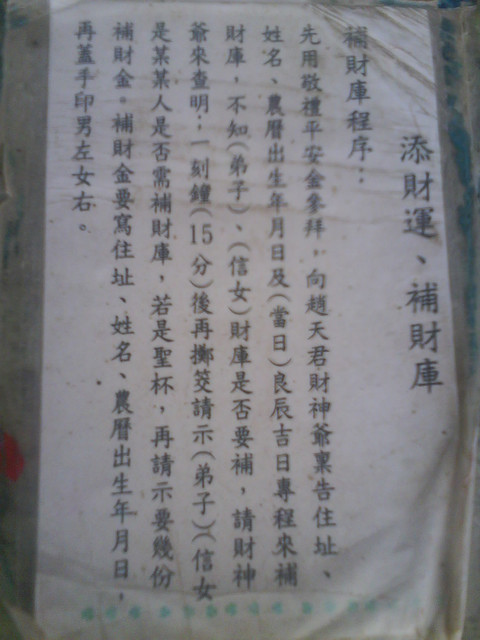 添財運、補財庫
補財庫程序：
先用敬禮平安金參拜，向趙天君財神爺稟告住址、
姓名、農曆出生年月日及(當日)良辰吉日專程來補
財庫，不知(弟子)、(信女)財庫是否要補，請財神
爺來查明，一刻鐘(15分)後再擲筊請示(弟子)(信女
是某某人是否需補財庫，若是聖杯，再請示要幾份
補財金。補財金要寫住址、姓名、農曆出生年月日，
再蓋手印男左女右。